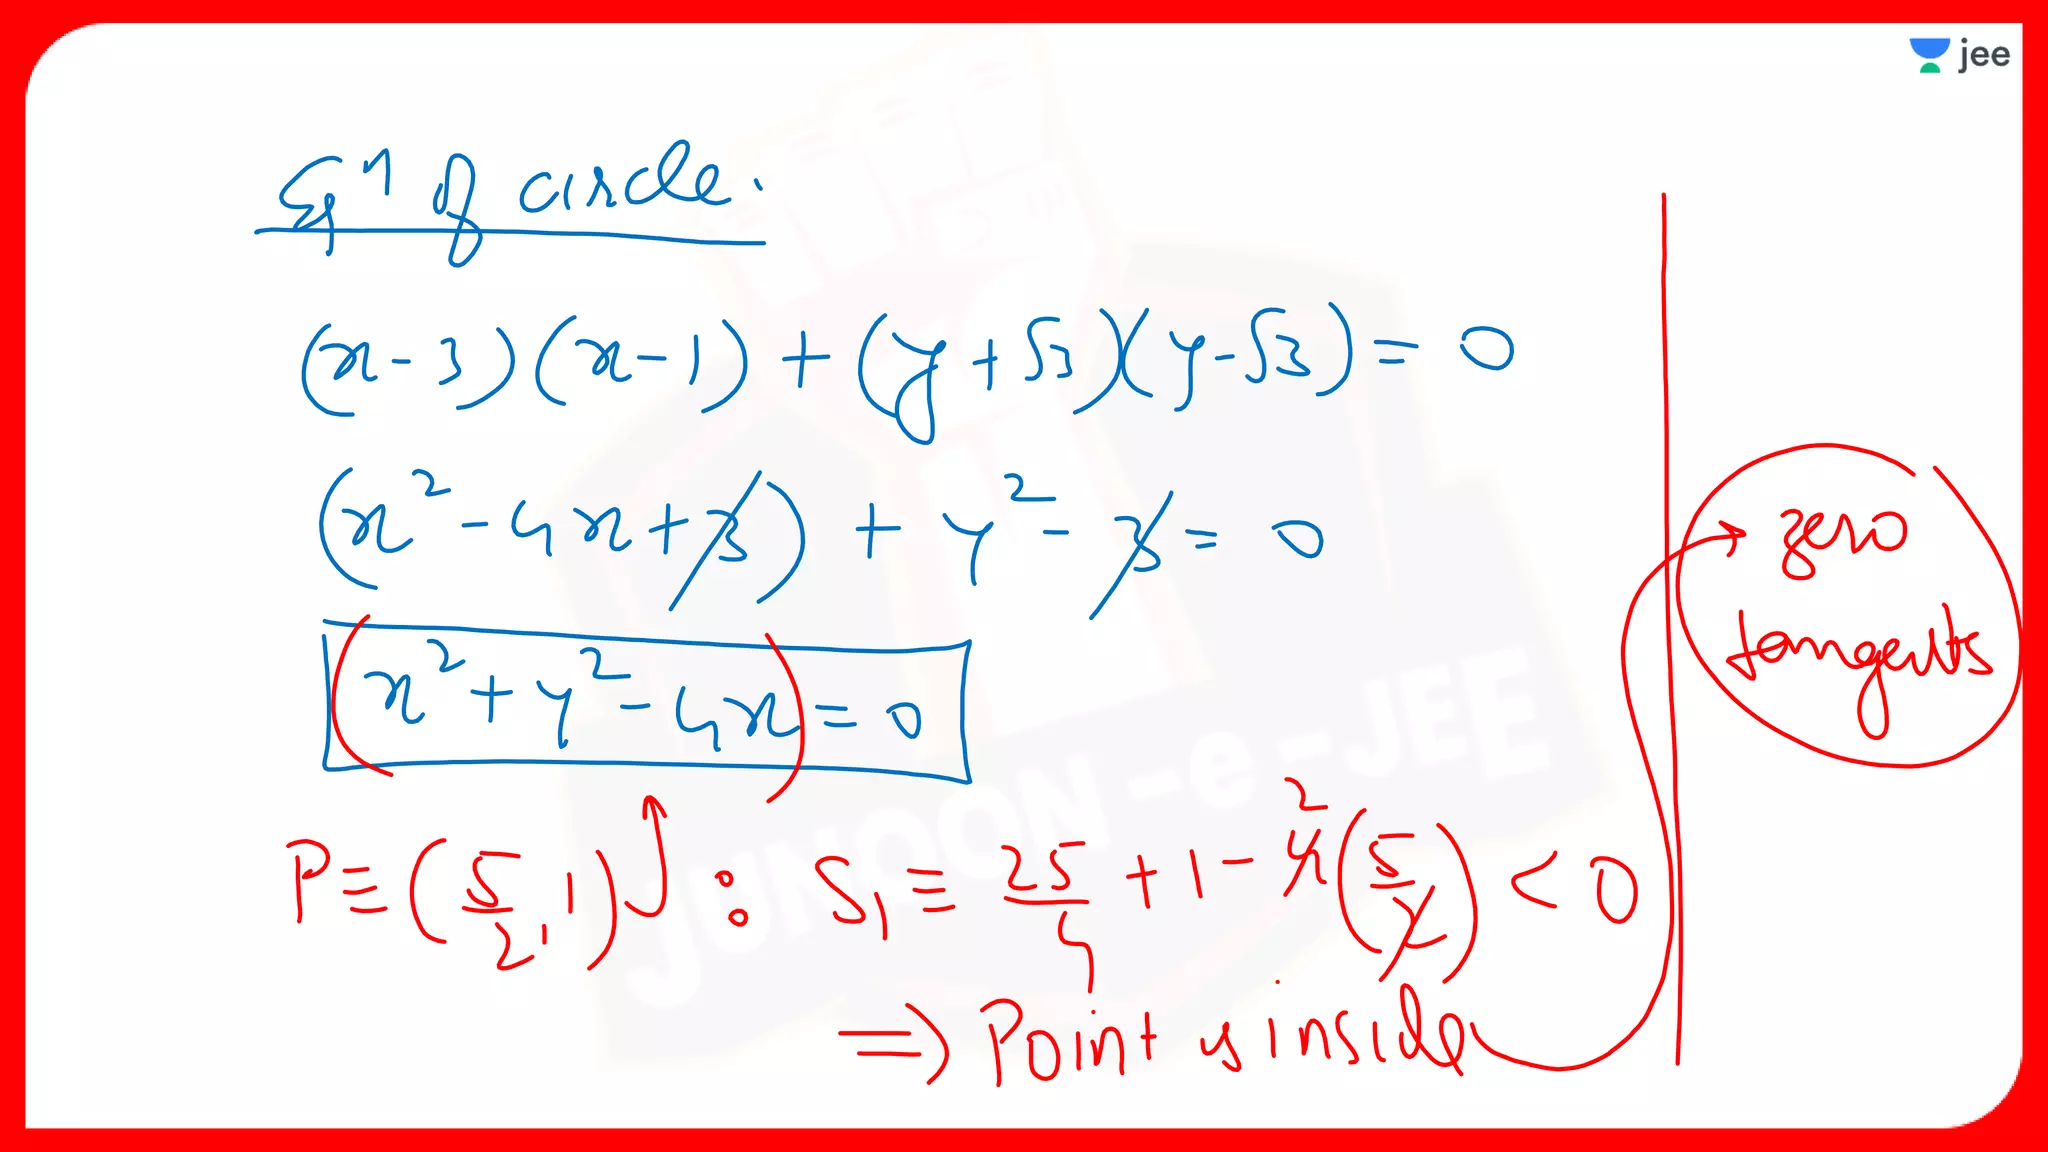 jee
Eqⁿ of circle.
(x-3)(x-1) + (y+√3)(y-√3) = 0
(x²-4x+3) + y² - 3 = 0
x² + y² - 4x = 0
P ≡ (5/2, 1) : S₁ ≡ 25/4 + 1 - 4 2 (5/2) < 0
⇒ Point is inside
→ zero
tangents
JUNOON-e-JEE